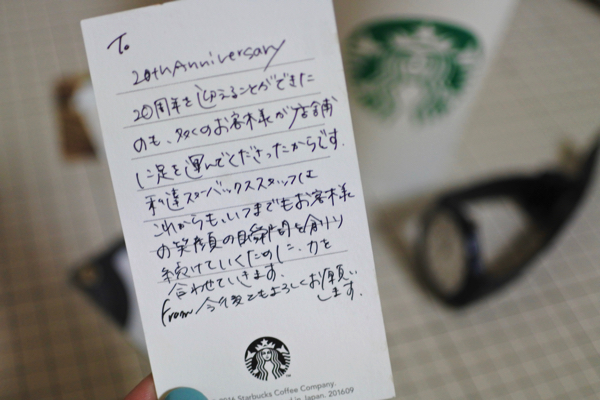 To
20thAnniversary
20周年を迎えることができた
のも、多くのお客様が店舗
に足を運んでくださったからです.
私達スターバックススタッフは
これからも、いつまでもお客様
の笑顔の時間を
続けていくために、力を
合わせていきます.
from 今後ともよろしくお願い
します.
2016 Starbucks Coffee Company.
in Japan. 201609